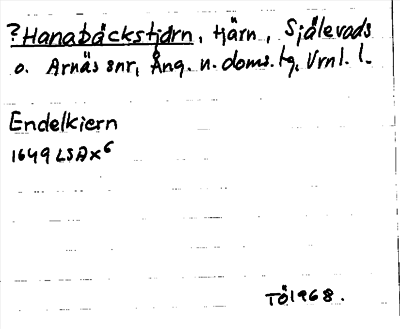 ?Hanabäckstjärn, tjärn, Själevads
o. Arnäs snr, Ång. n. doms. tg, Vrnl. l.
Endelkiern
1649 LSA x6
TÖ 1968.